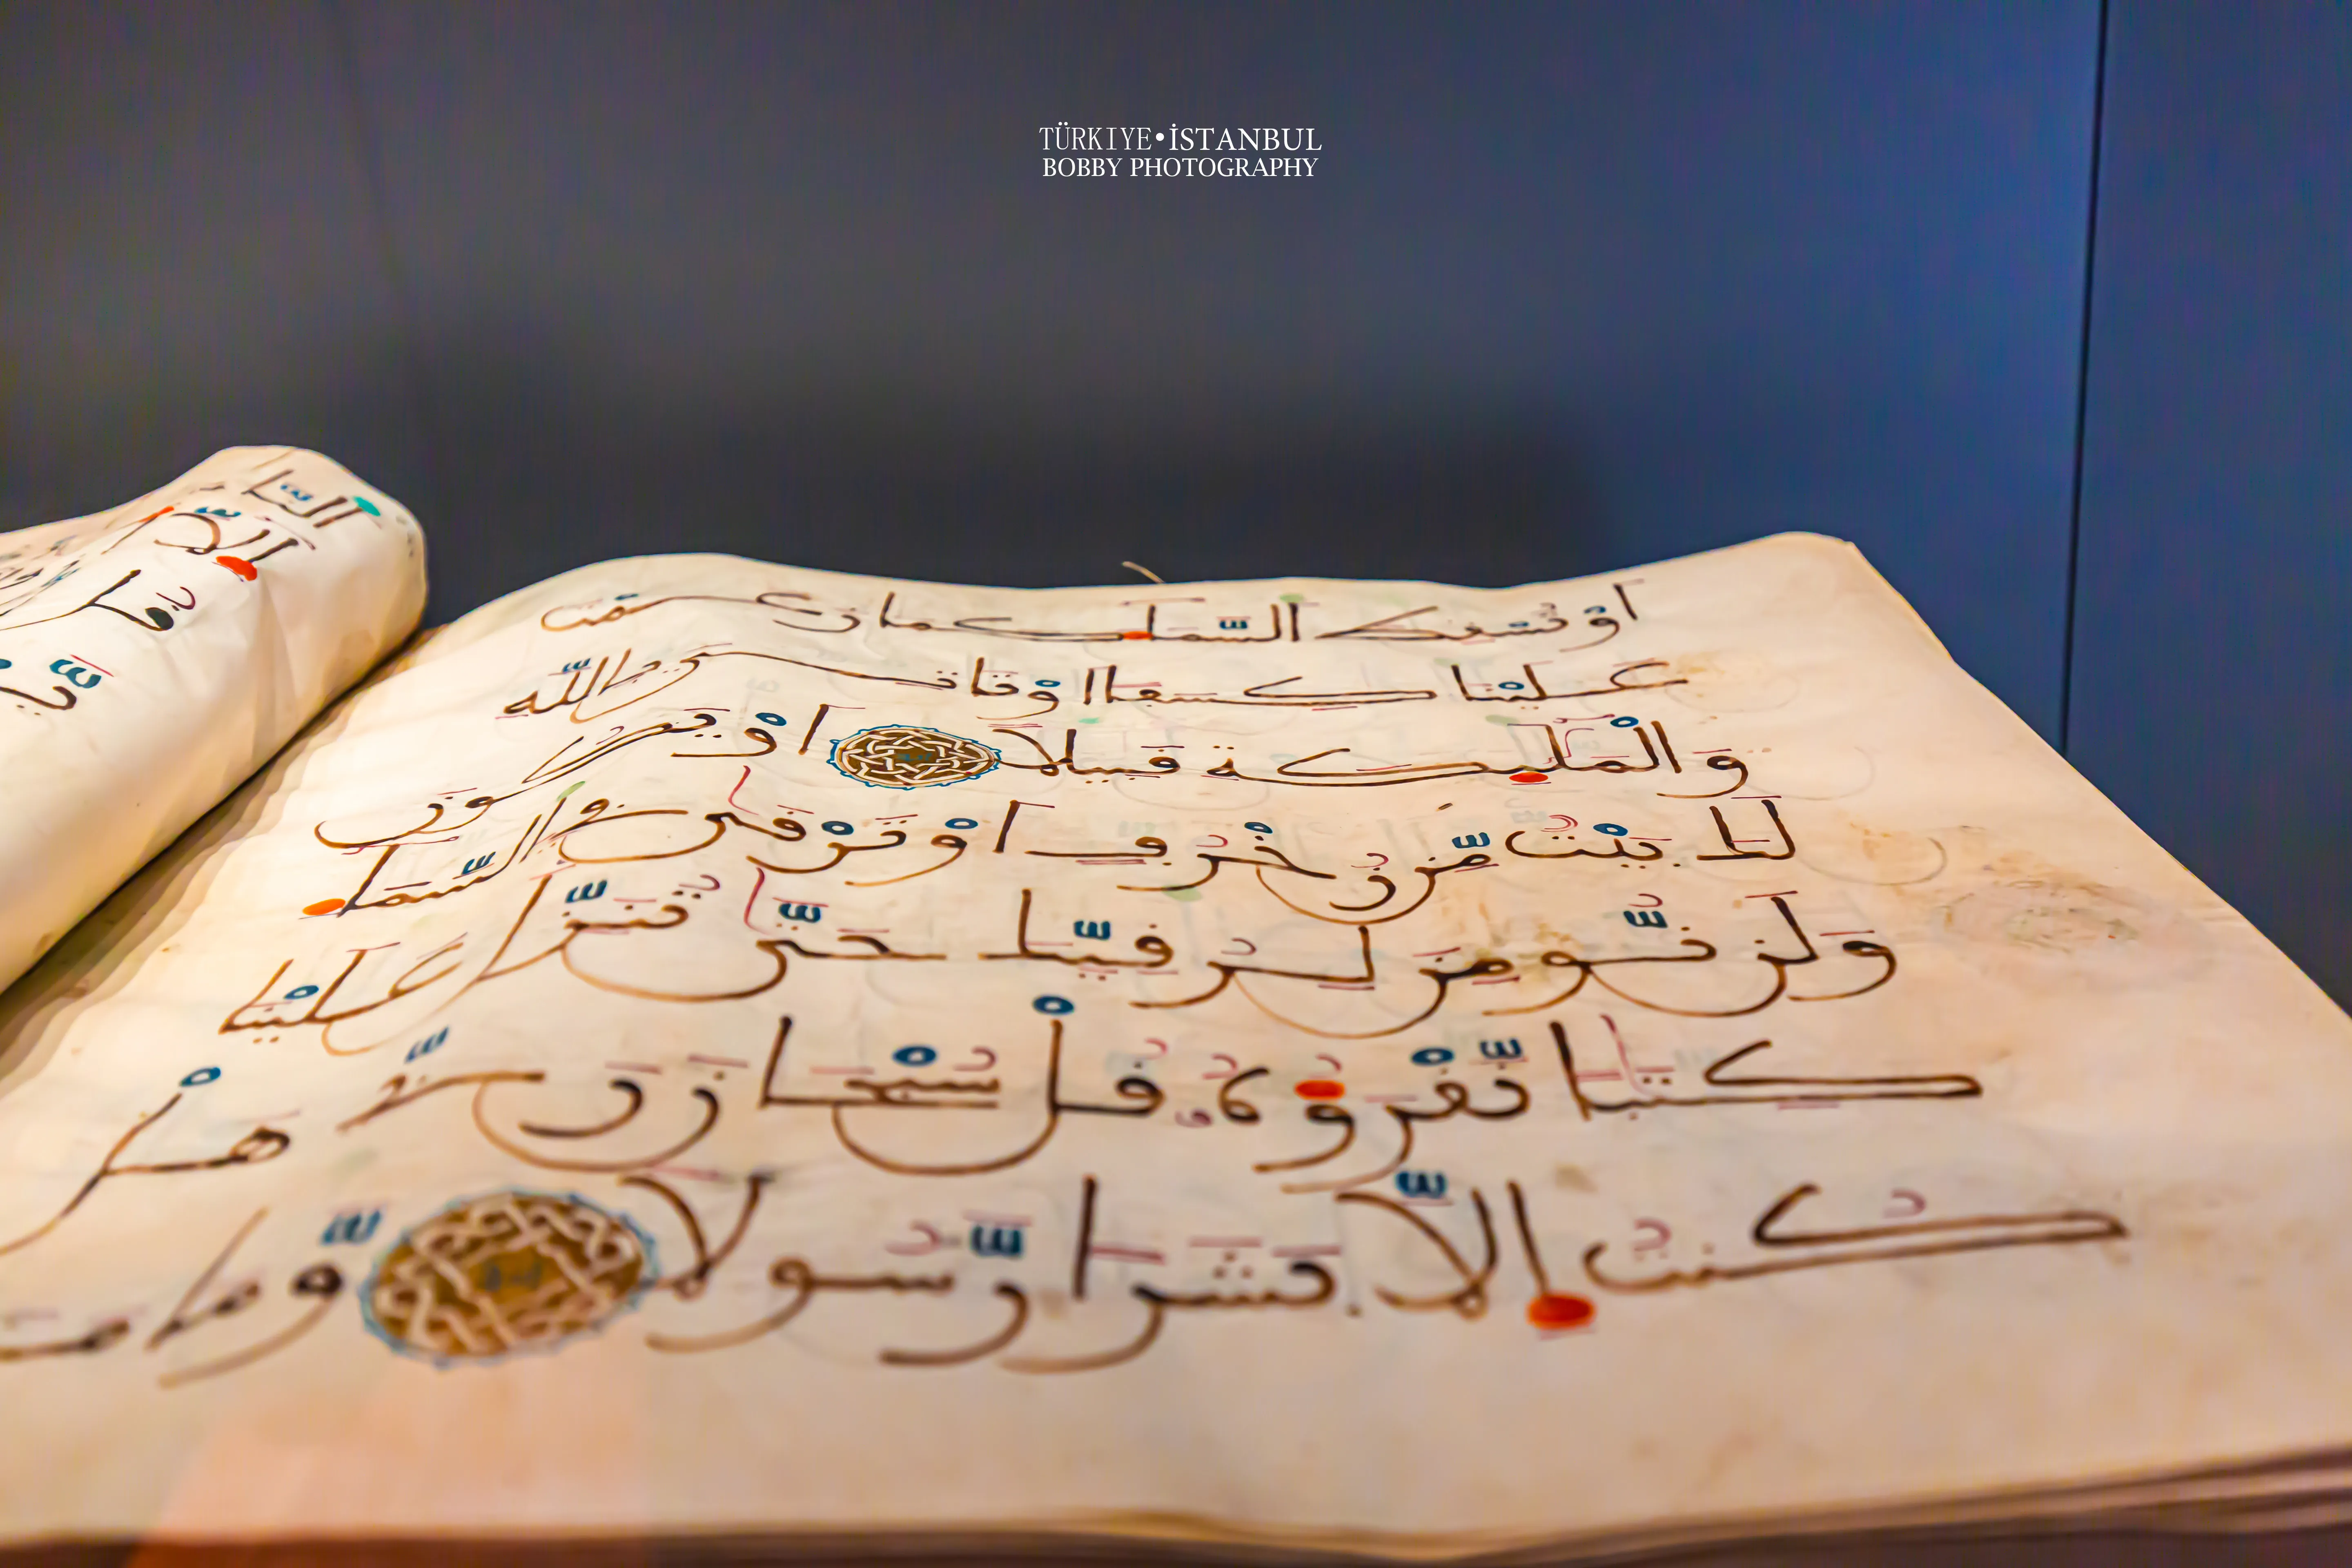 TÜRKIYE•İSTANBUL
BOBBY PHOTOGRAPHY
اَوْ تُسْقِطَ السَّمَآءَ كَمَا زَعَمْتَ
عَلَيْنَا كِسَفًا اَوْ تَاتِيَ بِاللَّهِ
وَالْمَلَٰٓئِكَةِ قَبِيلًا اَوْ يَكُونَ
لَكَ بَيْتٌ مِّن زُخْرُفٍ اَوْ تَرْقَىٰ فِي السَّمَآءِ
وَلَن نُّومِنَ لِرُقِيِّكَ حَتَّىٰ تُنَزِّلَ عَلَيْنَا
كِتَٰبًا نَّقْرَؤُهُۥ قُلْ سُبْحَانَ رَبِّي هَلْ
كُنتُ إِلَّا بَشَرًا رَّسُولًا وَّمَا